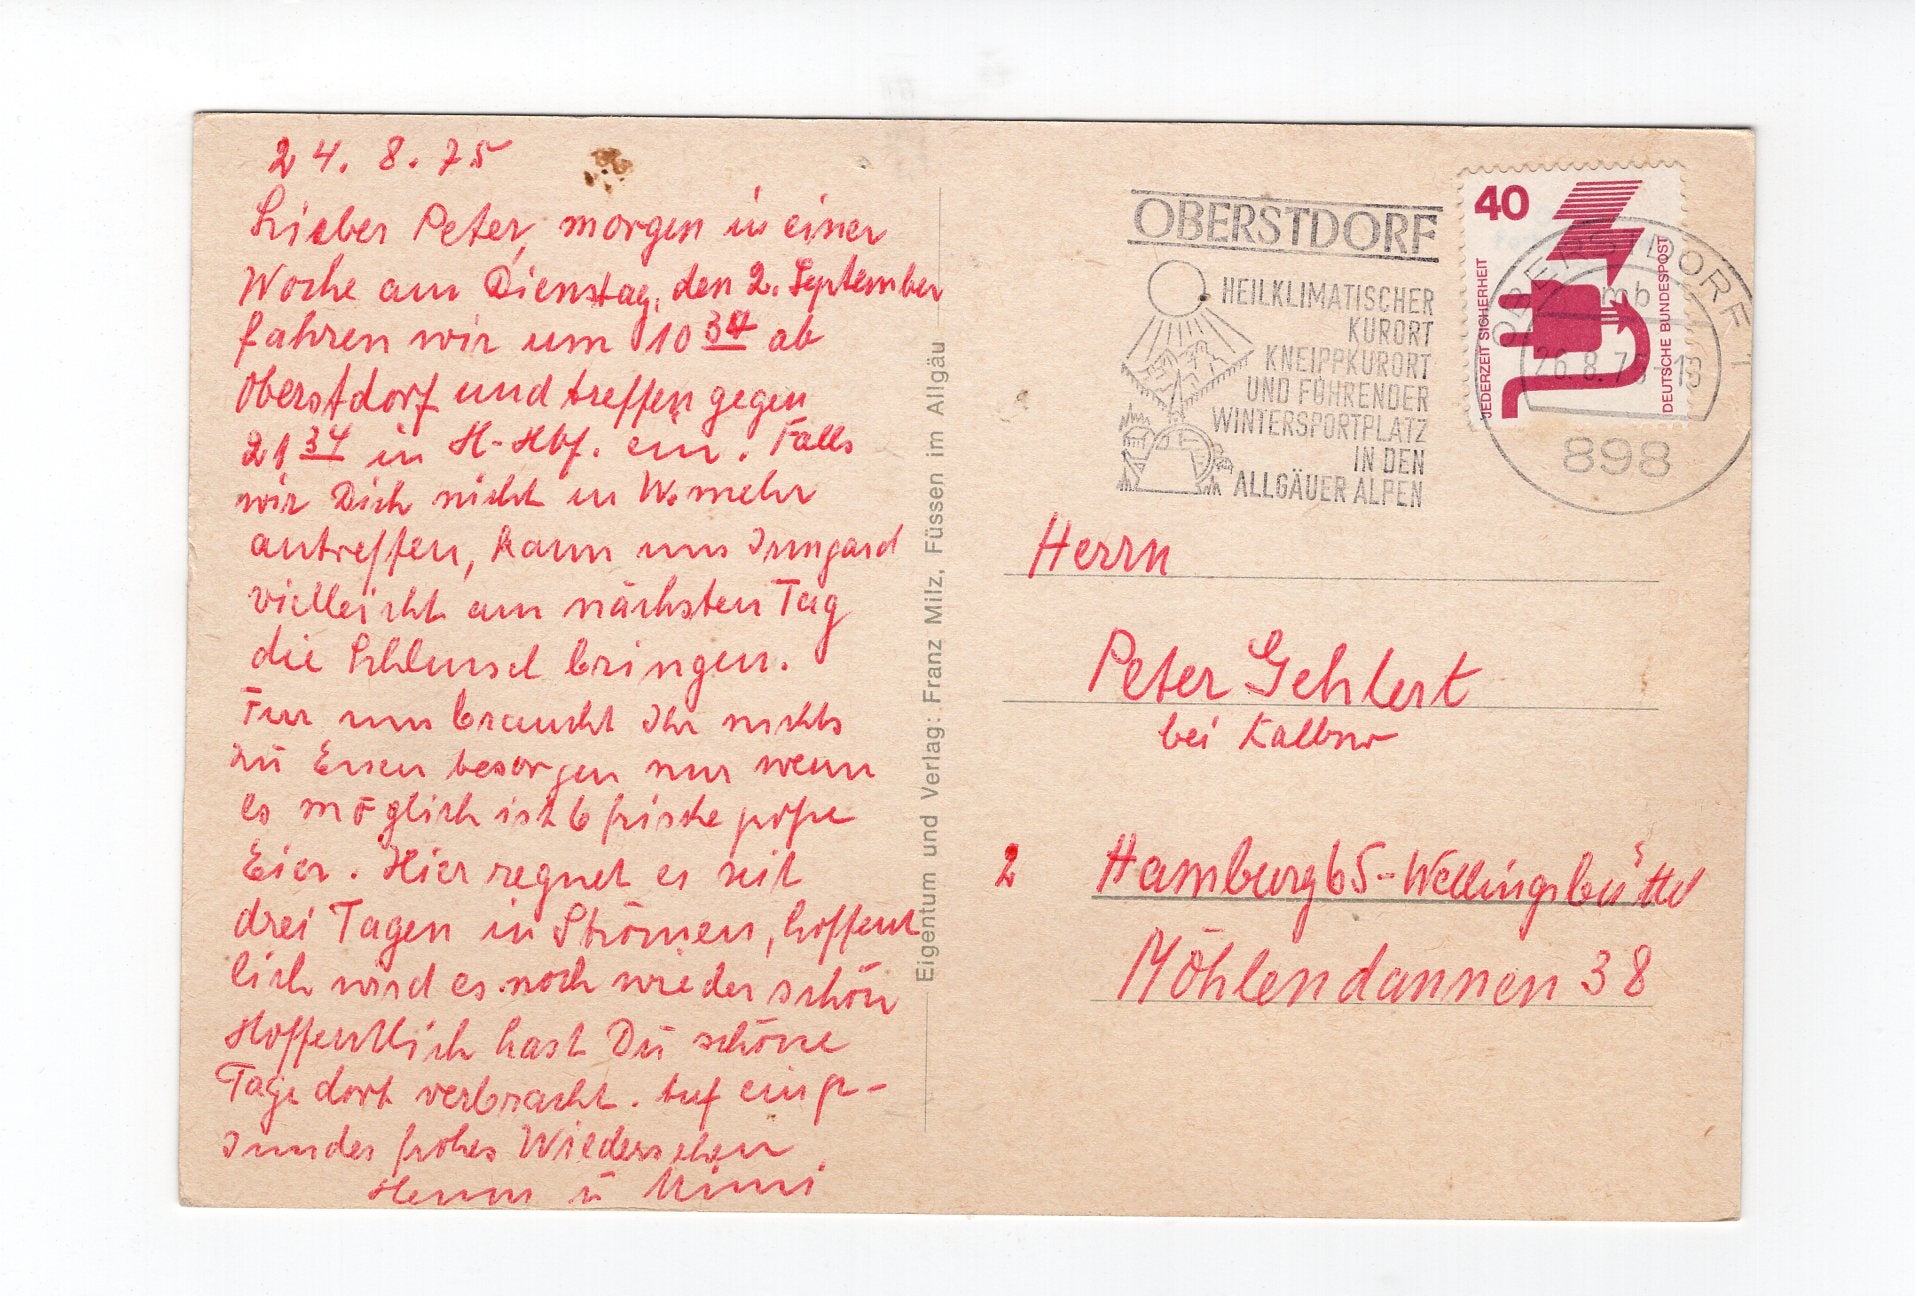 24. 8. 75
Lieber Peter, morgen in einer
Woche am Dienstag, den 2. September
fahren wir um 10 34 ab
Oberstdorf und treffen gegen
21 34 in H-Hbf. ein. Falls
wir Dich nicht in W. mehr
antreffen, kann uns Irmgard
vielleicht am nächsten Tag
die Schlüssel bringen.
Für uns braucht Ihr nichts
zu Essen besorgen nur wenn
es möglich ist 6 frische große
Eier. Hier regnet es seit
drei Tagen in Strömen, hoffent
lich wird es noch wieder schön
Hoffentlich hast Du schöne
Tage dort verbracht. Auf ein ge-
sundes frohes Wiedersehen
u Mimi
Eigentum und Verlag: Franz Milz, Füssen im Allgäu
OBERSTDORF
HEILKLIMATISCHER
KURORT
KNEIPPKURORT
UND FÜHRENDER
WINTERSPORTPLATZ
IN DEN
ALLGÄUER ALPEN
40
JEDERZEIT SICHERHEIT
DEUTSCHE BUNDESPOST
8980 OBERSTDORF 1
mb
26.8.75-18
898
Herrn
Peter Gehlert
bei
2 Hamburg 65-Wellingsbüttel
Möhlendannen 38